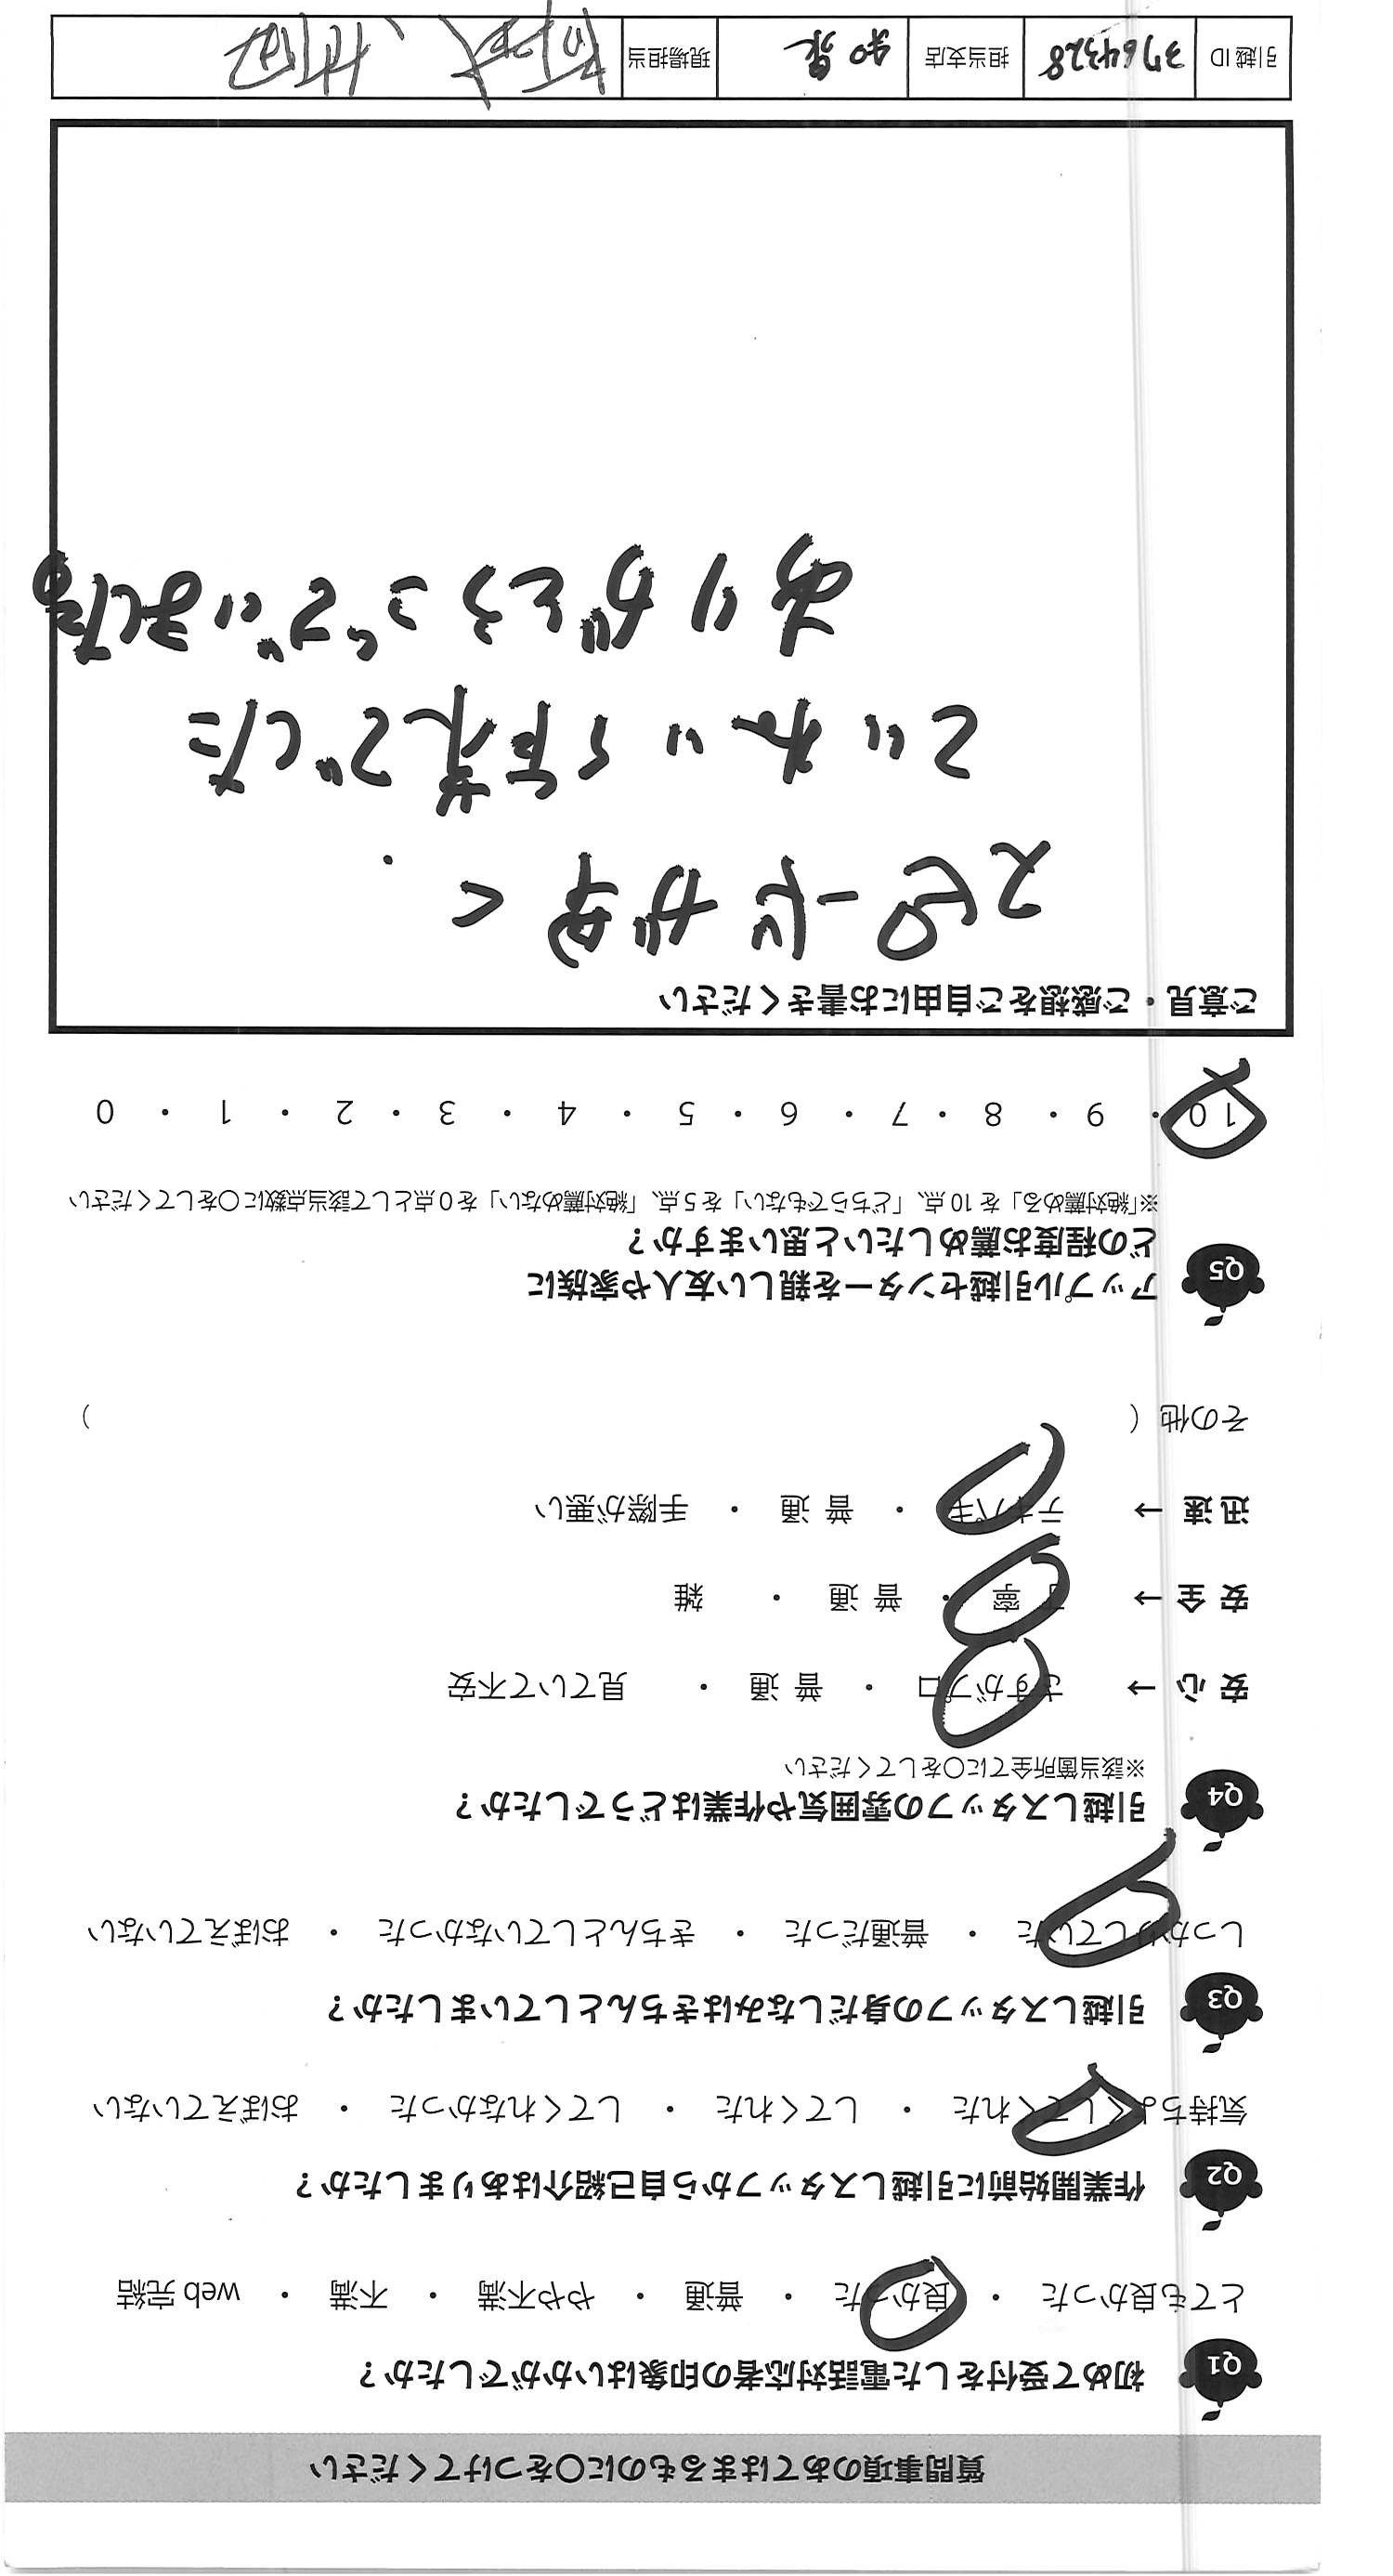 質問事項のあてはまるものに○をつけてください
Q1 初めて受付をした電話対応者の印象はいかがでしたか？
とても良かった ・ 良かった ・ 普通 ・ やや不満 ・ 不満 ・ web 完結
Q2 作業開始前に引越しスタッフから自己紹介はありましたか？
気持ちよくしてくれた ・ してくれた ・ してくれなかった ・ おぼえていない
Q3 引越しスタッフの身だしなみはきちんとしていましたか？
しっかりしていた ・ 普通だった ・ きちんとしていなかった ・ おぼえていない
Q4 引越しスタッフの雰囲気や作業はどうでしたか？
※該当箇所全てに○をしてください
安心 → さすがプロ ・ 普通 ・ 見ていて不安
安全 → 丁寧 ・ 普通 ・ 雑
迅速 → テキパキ ・ 普通 ・ 手際が悪い
その他 （ ）
Q5 アップル引越センターを親しい友人や家族に
どの程度お薦めしたいと思いますか？
※「絶対薦める」を 10 点、「どちらでもない」を 5 点、「絶対薦めない」を 0 点として該当点数に○をしてください
10 ・ 9 ・ 8 ・ 7 ・ 6 ・ 5 ・ 4 ・ 3 ・ 2 ・ 1 ・ 0
ご意見・ご感想をご自由にお書きください
スピードが早く
ていねいく作業でした
ありがとうございました
引越 ID 3764328 担当支店 和泉 現場担当